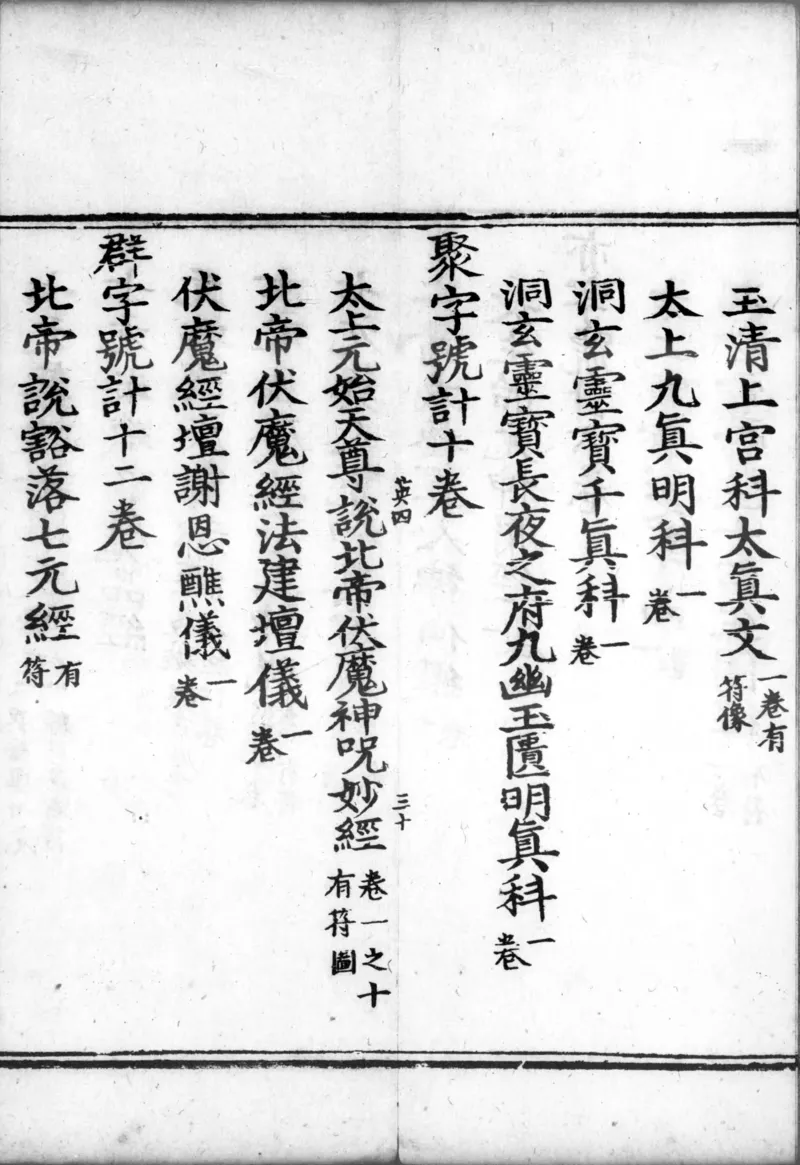 玉清上宫科太眞文一卷有符像
太上九眞明科一卷
洞玄靈寶千眞科一卷
洞玄靈寶長夜之府九幽玉匱明眞科一卷
聚字號計十卷
英四 三十
太上元始天尊說北帝伏魔神呪妙經卷一之十有符圖
北帝伏魔經法建壇儀一卷
伏魔經壇謝恩醮儀一卷
群字號計十二卷
北帝說豁落七元經有符